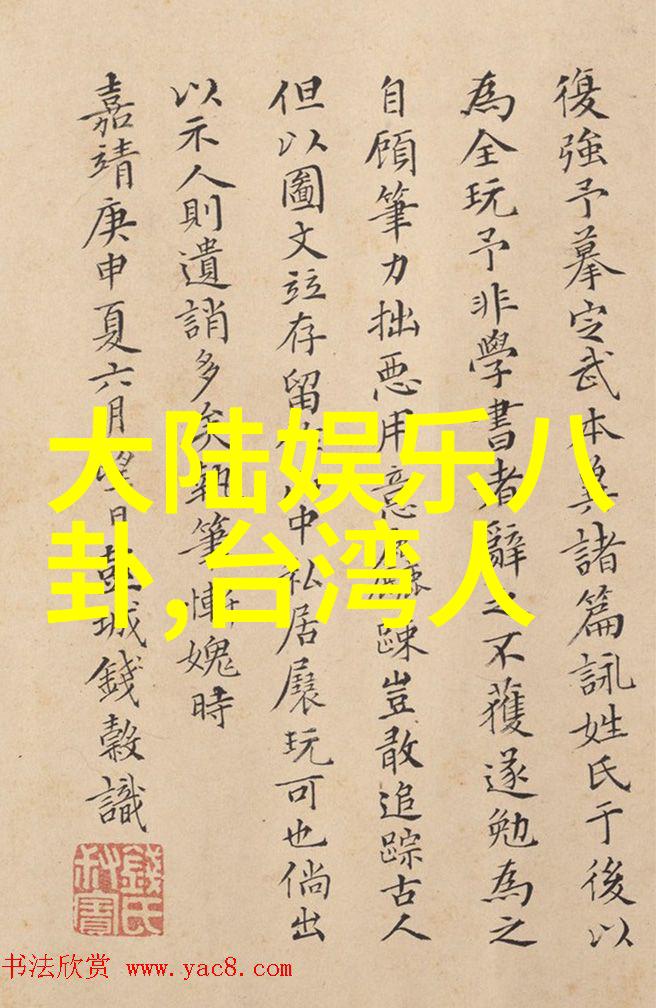 復強予摹定武本兼諸篇詠姓氏于後以
為全玩予非學書者辭之不獲遂勉為之
自顧筆力拙惡用意踈豈敢追踪古人
但以圖文竝存留中私居展玩可也倘出
以示人則遺誚多矣執筆慚媿時
嘉靖庚申夏六月望日城錢穀識
錢氏
大陆娱乐八
卦,台湾人
书法欣赏 www.yac8.com